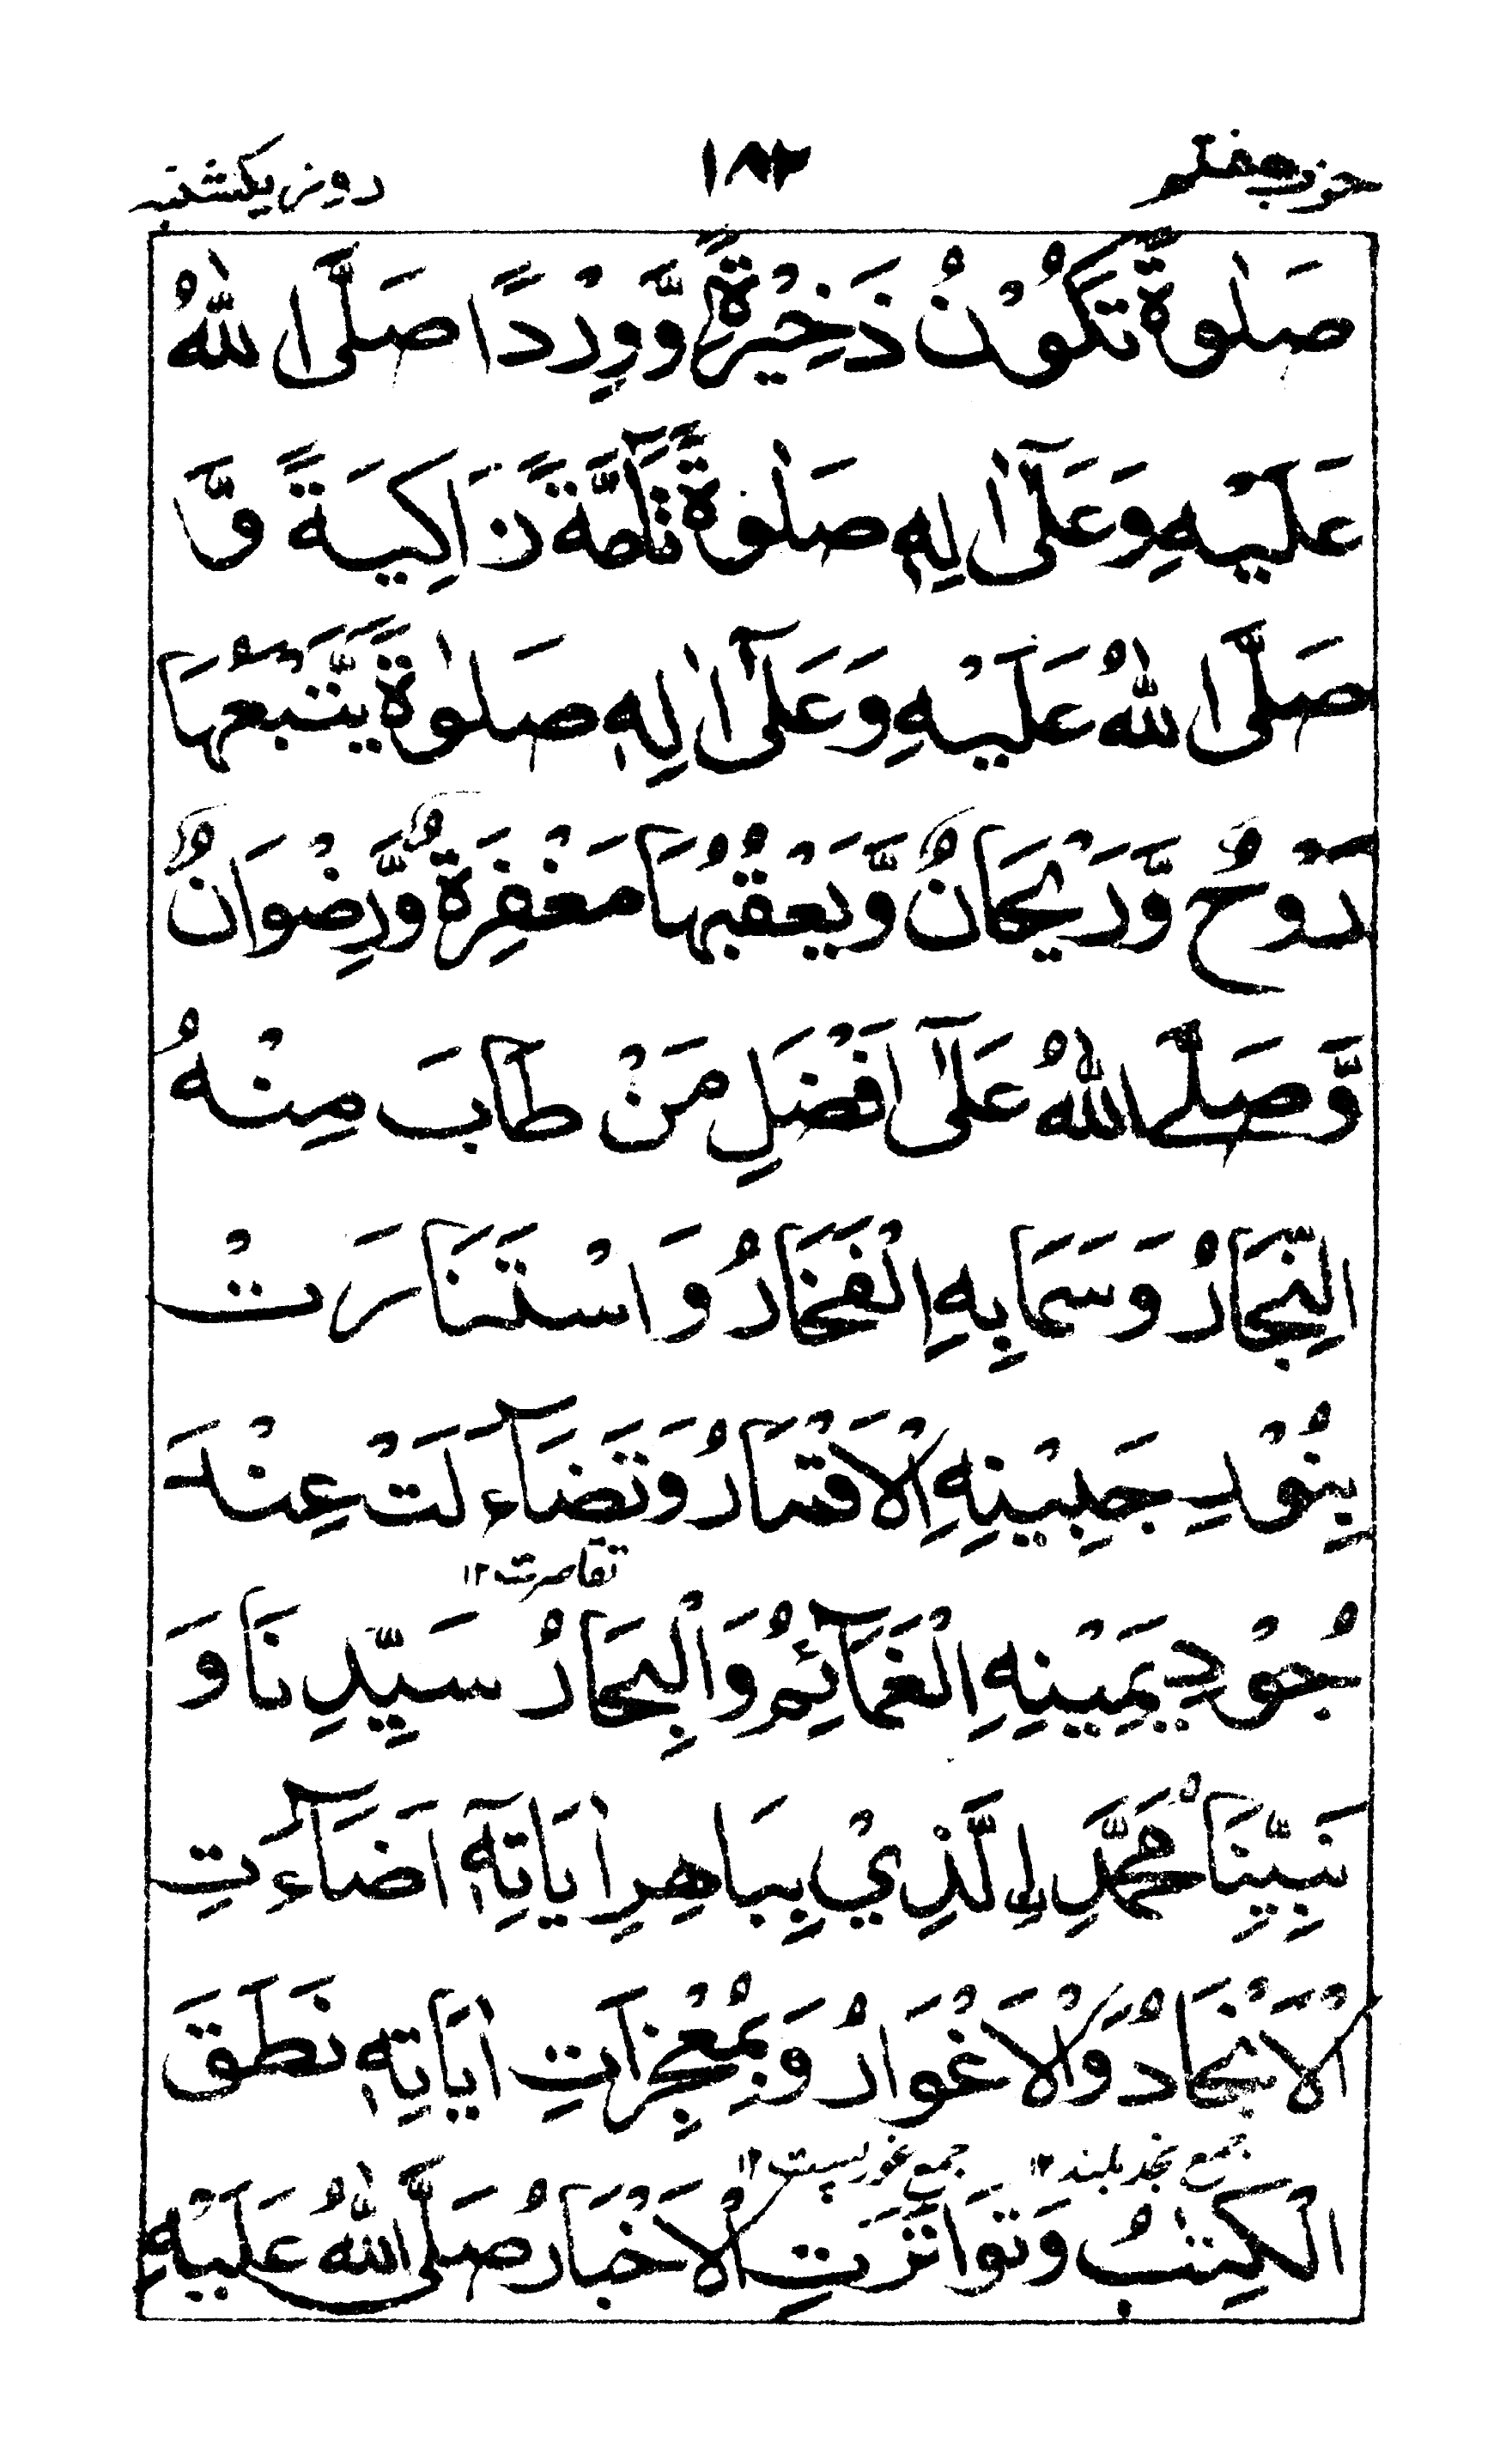 حزب هفتم ١٨٢ روز یکشنبه
صَلٰوةً تَكُوْنُ ذَخِيْرَةً وَّوِرْدًا صَلَّى اللّٰهُ
عَلَيْهِ وَعَلٰٓى اٰلِهٖ صَلٰوةً تَآمَّةً زَاكِيَةً وَّ
صَلَّى اللّٰهُ عَلَيْهِ وَعَلٰٓى اٰلِهٖ صَلٰوةً يَّتْبَعُهَا
رَوْحٌ وَّرَيْحَانٌ وَّيَعْقُبُهَا مَغْفِرَةٌ وَّرِضْوَانٌ
وَّصَلَّى اللّٰهُ عَلٰٓى اَفْضَلِ مَنْ طَابَ مِنْهُ
النِّجَارُ وَسَمَا بِهِ الْفَخَارُ وَاسْتَنَارَتْ
بِنُوْرِ جَبِيْنِهِ الْاَقْمَارُ وَتَضَآءَلَتْ عِنْدَ
تقاصرت ١٢
جُوْدِ يَمِيْنِهِ الْغَمَآئِمُ وَالْبِحَارُ سَيِّدِنَا وَ
نَبِيِّنَا مُحَمَّدِ نِ الَّذِيْ بِبَاهِرِ اٰيَاتِهٖٓ اَضَآءَتِ
الْاَنْجَادُ وَالْاَغْوَارُ وَبِمُعْجِزَاتِ اٰيَاتِهٖ نَطَقَ
جمع نجد بلند ١٢ جمع غور پست ١٢
الْكِتٰبُ وَتَوَاتَرَتِ الْاَخْبَارُ صَلَّى اللّٰهُ عَلَيْهِ